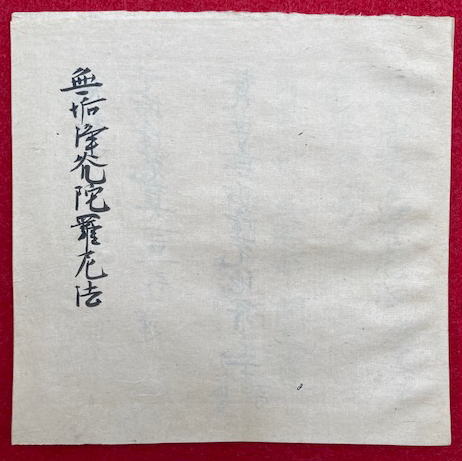 無垢浄光陀羅尼法